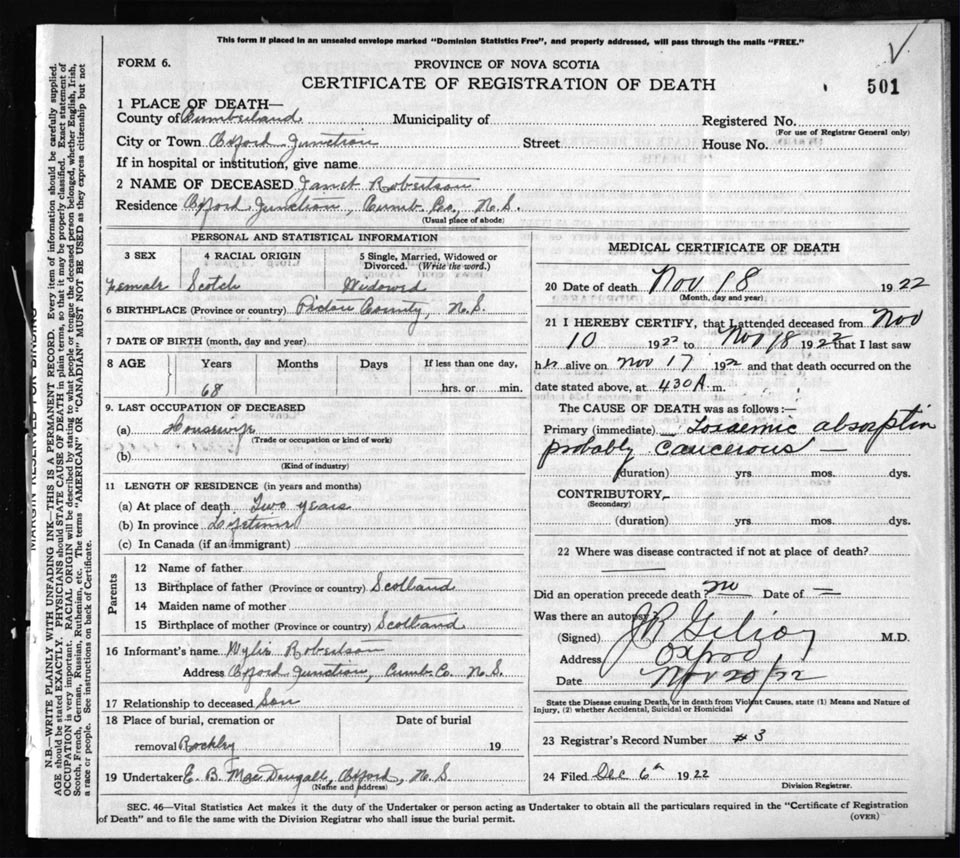 This form if placed in an unsealed envelope marked "Dominion Statistics Free", and properly addressed, will pass through the mails "FREE."
FORM 6.
PROVINCE OF NOVA SCOTIA
CERTIFICATE OF REGISTRATION OF DEATH
501
1 PLACE OF DEATH—
County of Cumberland Municipality of Registered No.
(For use of Registrar General only)
City or Town Oxford Junction Street House No.
If in hospital or institution, give name
2 NAME OF DECEASED Janet Robertson
Residence Oxford Junction, Cumb. Co., N.S.
(Usual place of abode)
PERSONAL AND STATISTICAL INFORMATION
3 SEX 4 RACIAL ORIGIN 5 Single, Married, Widowed or Divorced. (Write the word.)
Female Scotch Widowed
6 BIRTHPLACE (Province or country) Pictou County, N.S.
7 DATE OF BIRTH (month, day and year)
8 AGE Years Months Days If less than one day,
68 hrs. or min.
9. LAST OCCUPATION OF DECEASED
(a) Housewife
(Trade or occupation or kind of work)
(b)
(Kind of industry)
11 LENGTH OF RESIDENCE (in years and months)
(a) At place of death Two years
(b) In province Lifetime
(c) In Canada (if an immigrant)
Parents
12 Name of father
13 Birthplace of father (Province or country) Scotland
14 Maiden name of mother
15 Birthplace of mother (Province or country) Scotland
16 Informant's name Wylie Robertson
Address Oxford Junction, Cumb Co. N.S.
17 Relationship to deceased Son
18 Place of burial, cremation or Date of burial
removal Rockley 19
19 Undertaker E. B. MacDougall, Oxford, N.S.
(Name and address)
MEDICAL CERTIFICATE OF DEATH
20 Date of death Nov 18 1922
(Month, day and year)
21 I HEREBY CERTIFY, that I attended deceased from Nov
10 1922 to Nov 18 1922 that I last saw
her alive on Nov 17 1922 and that death occurred on the
date stated above, at 430 A.m.
The CAUSE OF DEATH was as follows:—
Primary (immediate) absorption
probably cancerous —
(duration) yrs. mos. dys.
CONTRIBUTORY,
(Secondary)
(duration) yrs. mos. dys.
22 Where was disease contracted if not at place of death?
Did an operation precede death? no Date of —
Was there an autopsy?
(Signed) M.D.
Address Oxford
Date Nov 20/22
State the Disease causing Death, or in death from Violent Causes, state (1) Means and Nature of
Injury, (2) whether Accidental, Suicidal or Homicidal
23 Registrar's Record Number #3
24 Filed Dec 6th 1922
Division Registrar.
SEC. 46—Vital Statistics Act makes it the duty of the Undertaker or person acting as Undertaker to obtain all the particulars required in the "Certificate of Registration
of Death" and to file the same with the Division Registrar who shall issue the burial permit.
(OVER)
MARGIN RESERVED FOR BINDING
N.B.—WRITE PLAINLY WITH UNFADING INK—THIS IS A PERMANENT RECORD. Every item of information should be carefully supplied.
AGE should be stated EXACTLY. PHYSICIANS should STATE CAUSE OF DEATH in plain terms, so that it may be properly classified. Exact statement of
OCCUPATION is very important. RACIAL ORIGIN will be described by stating to what people or tongue the deceased person belonged, whether English, Irish,
Scotch, French, German, Russian, Ruthenian, etc. The terms "AMERICAN" OR "CANADIAN" MUST NOT BE USED as they express citizenship but not
a race or people. See instructions on back of Certificate.